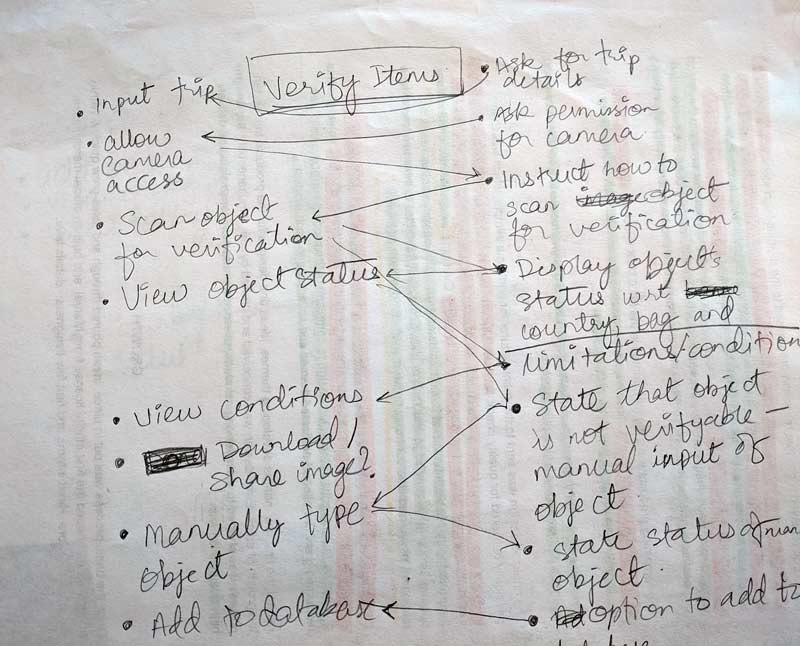 Verify Items
• Input trip
• allow
camera
access
• Scan object
for verification
• View Object Status
• View conditions
• Download /
Share image?
• Manually type
object
• Add to database
• Ask for trip
details
• Ask permission
for camera
• Instruct how to
scan object
for verification
• Display object's
status wrt
country, bag and
• limitations/condition
• State that object
is not verifyable –
manual input of
object.
• State status of man
object.
• option to add to